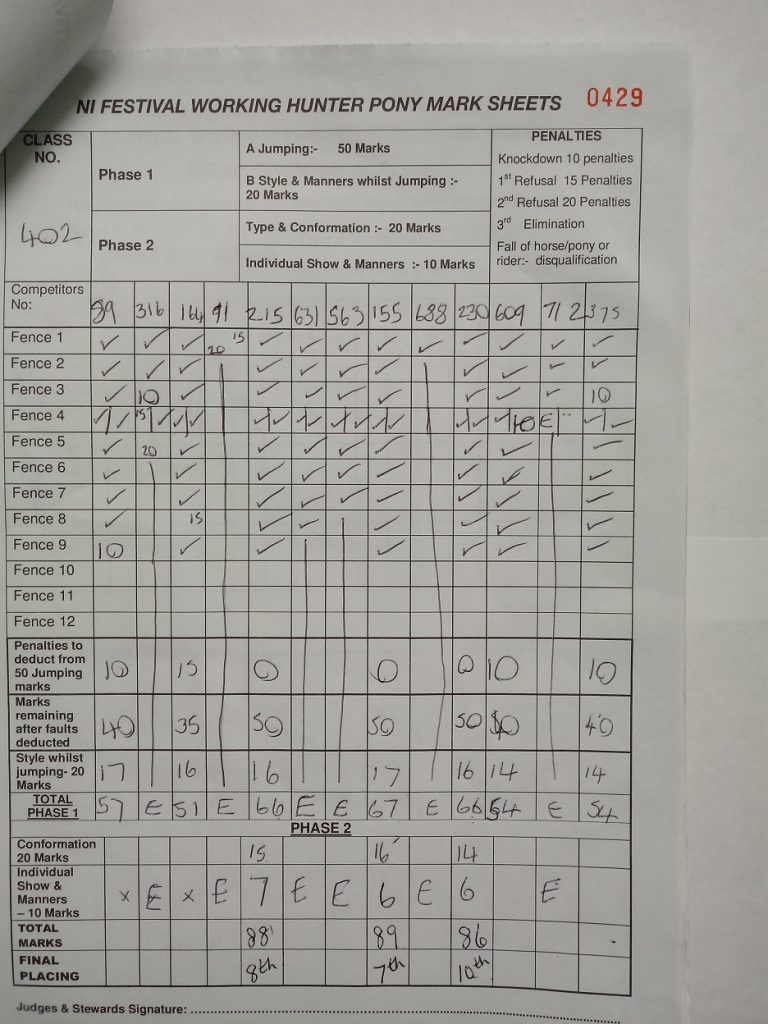 NI FESTIVAL WORKING HUNTER PONY MARK SHEETS 0429
CLASS NO. 402
Phase 1
A Jumping:- 50 Marks
B Style & Manners whilst Jumping :-
20 Marks
Phase 2
Type & Conformation :- 20 Marks
Individual Show & Manners :- 10 Marks
PENALTIES
Knockdown 10 penalties
1st Refusal 15 Penalties
2nd Refusal 20 Penalties
3rd Elimination
Fall of horse/pony or
rider:- disqualification
Competitors
No: 89 316 164 91 215 631 563 155 688 230 609 712 375
Fence 1 ✓ ✓ ✓ 20 15 ✓ ✓ ✓ ✓ ✓ ✓ ✓ ✓ ✓
Fence 2 ✓ ✓ ✓ ✓ ✓ ✓ ✓ ✓ ✓ ✓ ✓
Fence 3 ✓ 10 ✓ ✓ ✓ ✓ ✓ ✓ ✓ ✓ 10
Fence 4 ✓/✓ 15/✓ ✓/✓ ✓/✓ ✓/✓ ✓/✓ ✓/✓ ✓/✓ ✓/10 E ✓/✓
Fence 5 ✓ 20 ✓ ✓ ✓ ✓ ✓ ✓ ✓ ✓
Fence 6 ✓ ✓ ✓ ✓ ✓ ✓ ✓ ✓ ✓
Fence 7 ✓ ✓ ✓ ✓ ✓ ✓ ✓ ✓ ✓
Fence 8 ✓ 15 ✓ ✓ ✓ ✓ ✓ ✓
Fence 9 10 ✓ ✓ ✓ ✓ ✓ ✓
Fence 10
Fence 11
Fence 12
Penalties to
deduct from
50 Jumping
marks 10 15 0 0 0 10 10
Marks
remaining
after faults
deducted 40 35 50 50 50 40 40
Style whilst
jumping- 20
Marks 17 16 16 17 16 14 14
TOTAL
PHASE 1 57 E 51 E 66 E E 67 E 66 54 E 54
PHASE 2
Conformation
20 Marks 15 16 14
Individual
Show &
Manners
– 10 Marks x E x E 7 E E 6 E 6 E
TOTAL
MARKS 88 89 86
FINAL
PLACING 8th 7th 10th
Judges & Stewards Signature: